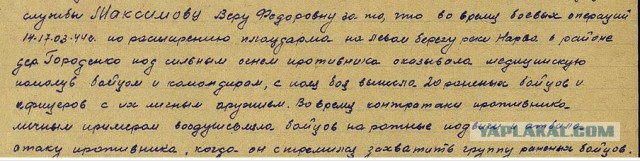 службы Максимову Веру Федоровну за то, что во время боевых операций
14-17.03.44г. по расширению плацдарма на левом берегу реки Нарва в районе
дер Городенко под сильным огнем противника оказывала медицинскую
помощь бойцам и командирам, с поля боя вынесла 20 раненых бойцов и
офицеров с их личным оружием. Во время контратаки противника
личным примером воодушевляла бойцов на ратные подвиги
атаку противника, когда он стремился захватить группу раненых бойцов.
YAPLAKAL.COM